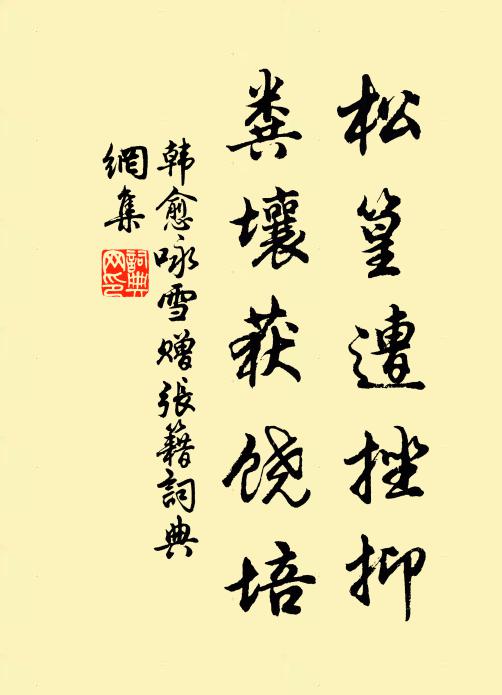 松篁遭挫抑
粪壤获饶培
韩愈咏雪赠张籍詞典
網集
詞典网印